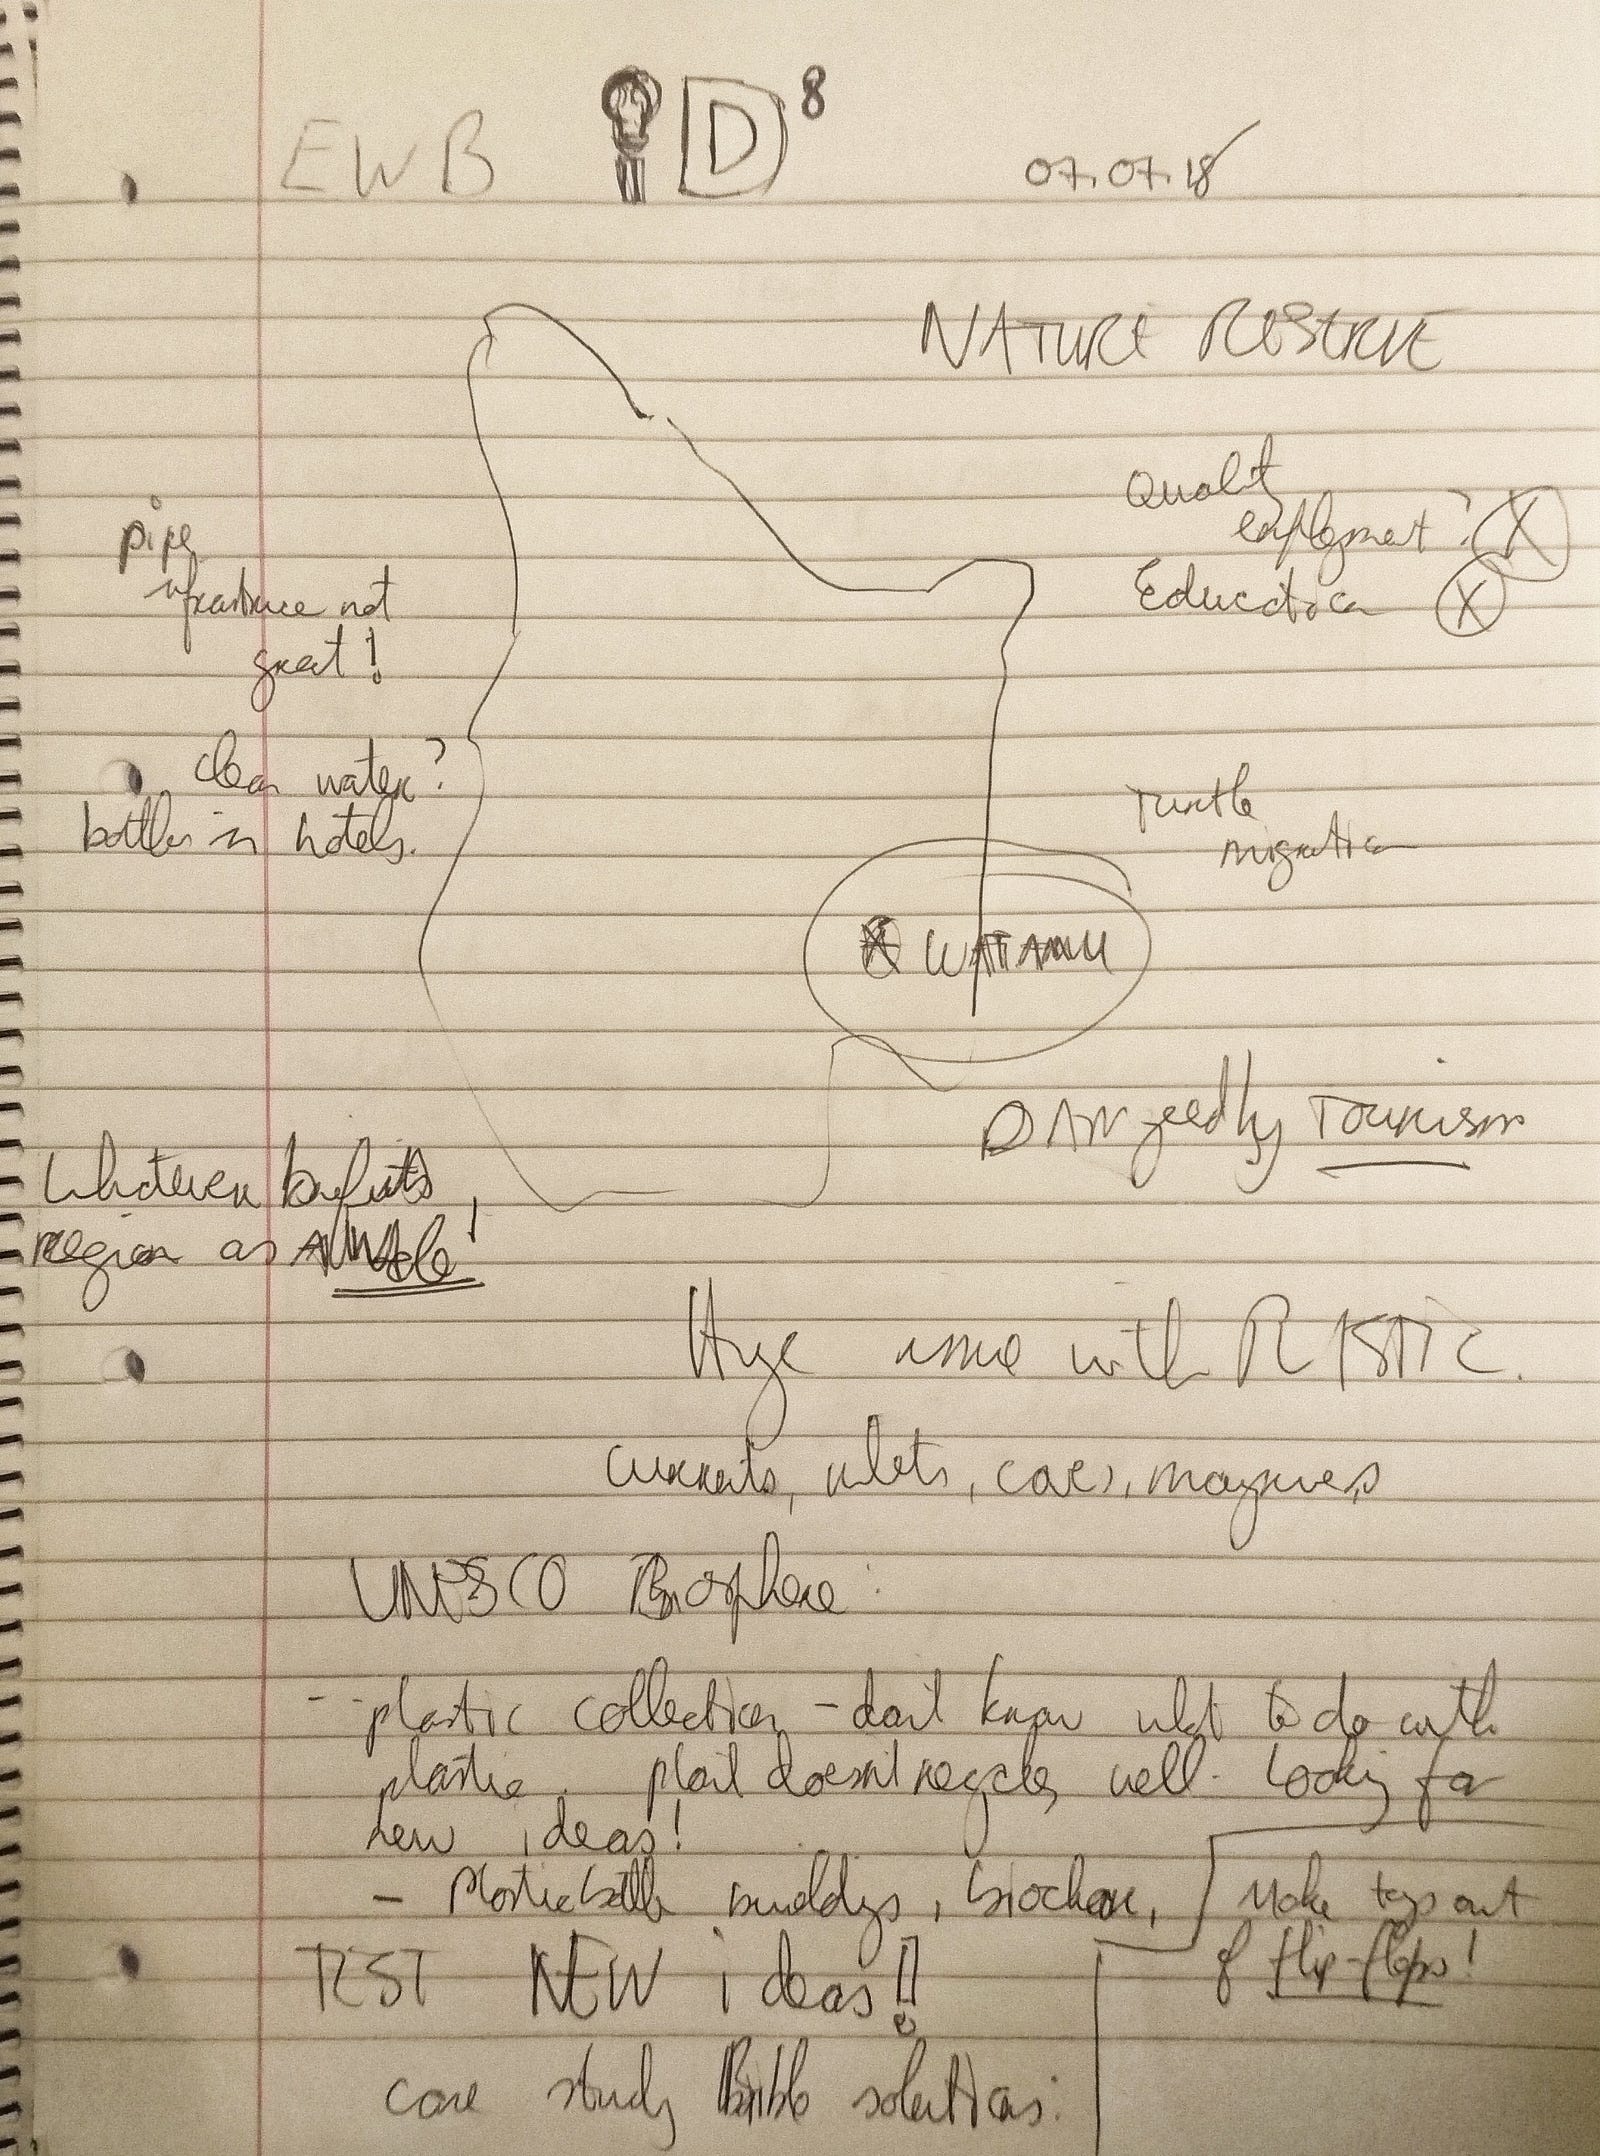 EWB D⁸
07.07.18
NATURE RESERVE
Quality
employment? X
Education X
pipe
not
great!
clean water?
bottles in hotels.
Turtle
migration
X WATAMU
by Tourism
Whatever benefits
region as A Whole!
Huge issue with PLASTIC.
currents, inlets,
UNESCO Biosphere:
- plastic collection - don't know what to do with
plastic. doesn't recycle well. Looking for
new ideas!
- Plastic bottle
Make toys out
of flip-flops!
TEST NEW ideas!!
case study solutions: